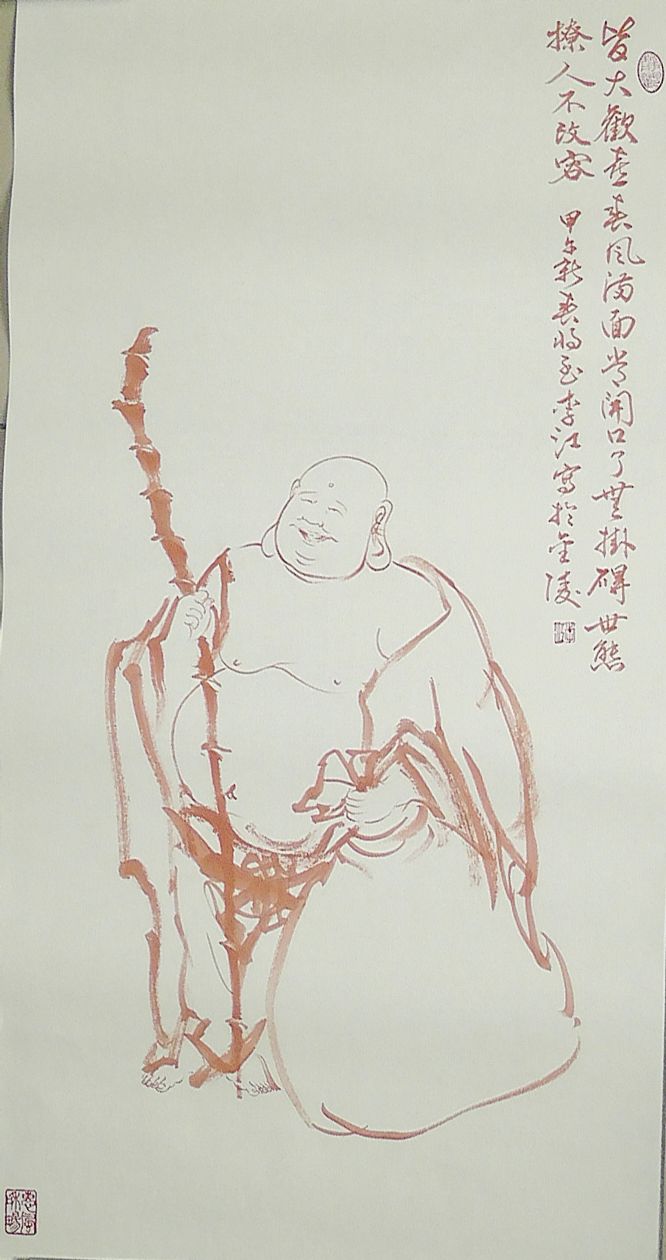 皆大歡喜春風滿面常開口了無掛礙世態
撩人不改容
甲午新春將至李江寫於金陵